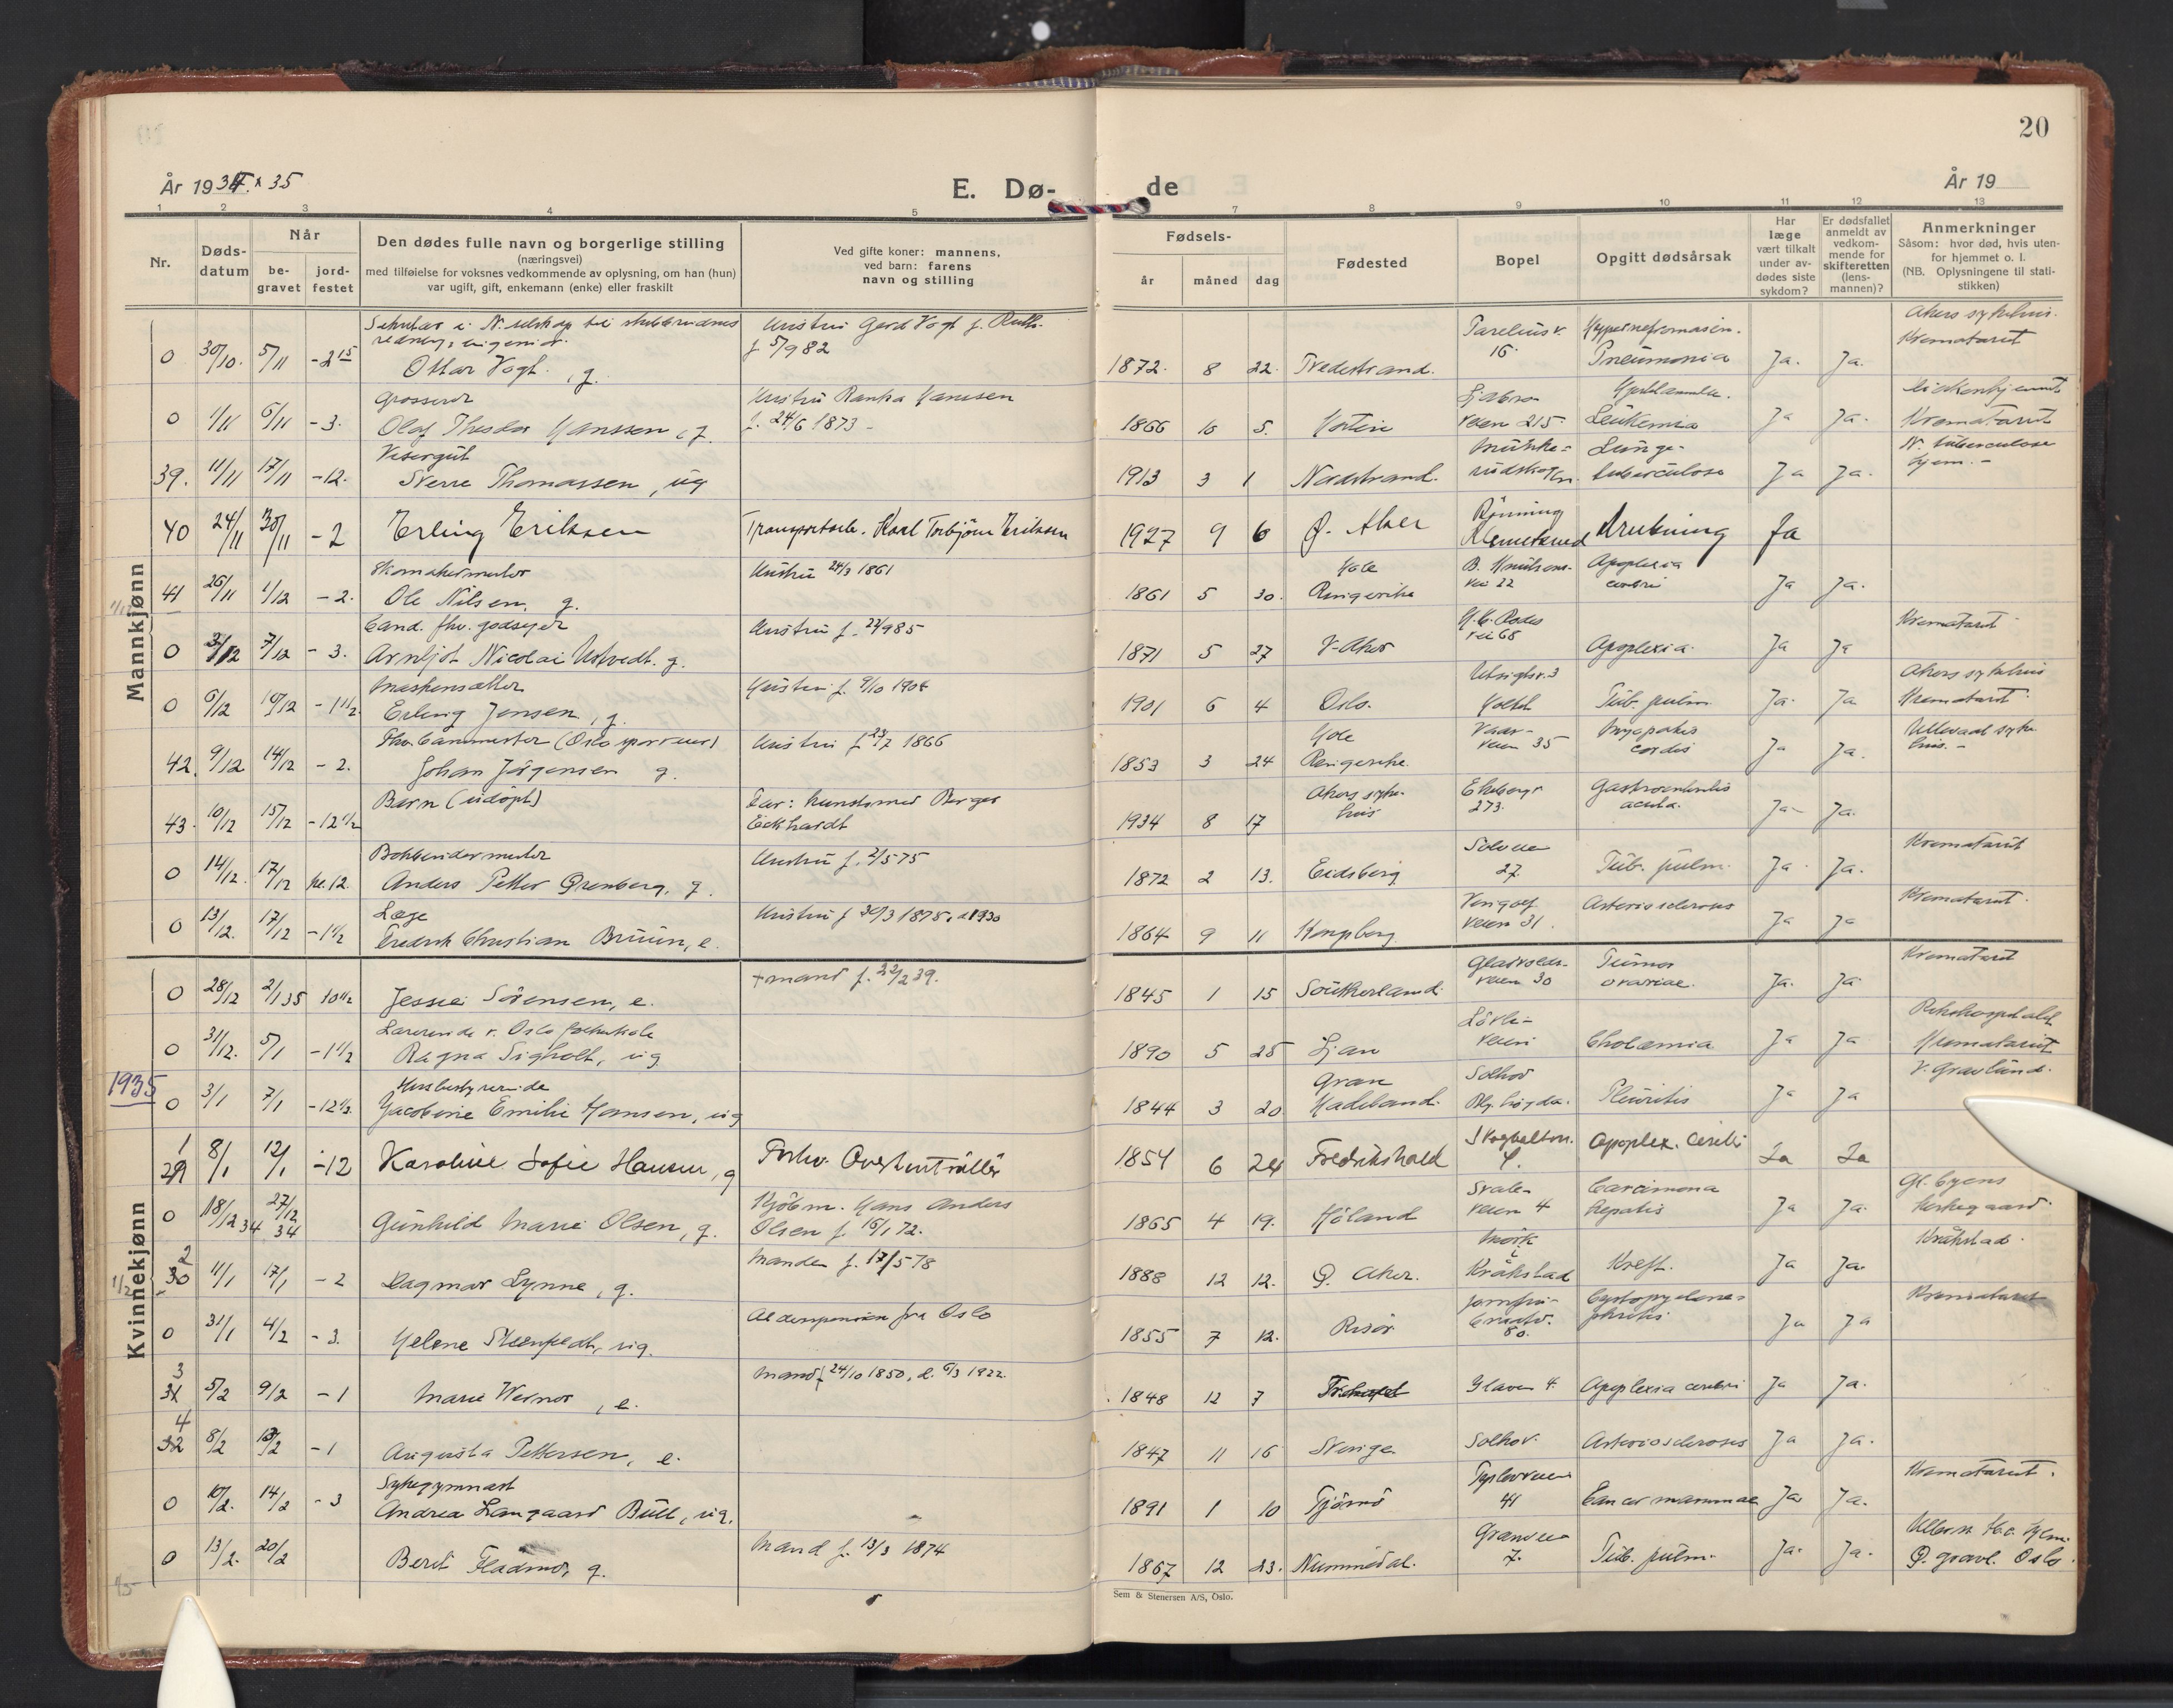 20
År 1934 * 35
E. Dø-
de
År 19
1 2 3 4 5 7 8 9 10 11 12 13
Nr.
Døds-
datum
Når
be-
gravet
jord-
festet
Den dødes fulle navn og borgerlige stilling
(næringsvei)
med tilføielse for voksnes vedkommende av oplysning, om han (hun)
var ugift, gift, enkemann (enke) eller fraskilt
Ved gifte koner: mannens,
ved barn: farens
navn og stilling
Fødsels-
år måned dag
Fødested
Bopel
Opgitt dødsårsak
Har
læge
vært tilkalt
under av-
dødes siste
sykdom?
Er dødsfallet
anmeldt av
vedkom-
mende for
skifteretten
(lens-
mannen)?
Anmerkninger
Såsom: hvor død, hvis uten-
for hjemmet o. l.
(NB. Oplysningene til stati-
stikken)
Mannkjønn
Akers sykehus.
0 30/10. 5/11 - 2 15 Ottar Vogt. , g. 1872. 8 22. Tvedestrand. 16. Pneumonia Ja. Ja. Krematoriet
Grosserer
0 1/11 6/11 - 3. Olaf Theodor Hanssen, g. f. 24/6 1873 - 1866 10 5. Veien 215. Leukemia Ja Ja. Krematoriet
Visergut
39. 11/11 17/11 - 12. Sverre Thomassen, ug 1913 3 1 Nordstrand. tuberculose Ja Ja. hjem. -
40 24/11 30/11 - 2 Erling Eriksen Transportarb. Karl Torbjörn Eriksen 1927 9 6 Ø. Aker Rönning Klemetsrud Drukning Ja
Skomakermester Hustru 24/3 1861
41 26/11 1/12 - 2. Ole Nilsen, g. 1861 5 30. Hole Ringerike Vei 22 Apoplexia cerebri Ja Ja.
Cand. fhv. godseier
0 7/12 - 3. Arnljot Nicolai Ustvedt. g. 1871 5 27 V-Aker vei 68 Apoplexia. Ja Ja Krematoriet
0 6/12 10/12 - 1 1/2. Erling Jensen, g. Hustru f. 9/10 1904 1901 6 4 Oslo. Tub. pulm. Ja. Ja Akers sykehus Krematoriet
42. 9/12 14/12 - 2. Johan Jörgensen g. 1853 3 24 Hole Ringerike. veien 35 Myopatis cordis Ja Ja. Ullevaal syke-
hus. -
43. 10/12 15/12 - 12 1/2 Barn (udöpt) Far: kunstsmed Birger
Eickhardt 1934 8 17 Akers syke-
hus 273. Gastroenteritis
acuta. Ja Ja.
Bokbindermester
0 14/12. 17/12 kl. 12. Anders Petter Grenberg, g. Hustru f. 2/5 75 1872 2 13. Eidsberg 27. Tub. pulm. Ja Ja. Krematoriet
Læge
0 13/12. 17/12 - 1 1/2 Fredrik Christian Bruun, e. Hustru f 30/3 1875, d 1930 1864 9 11 Kongsberg veien 31. Arteriosclerosis Ja Ja Krematoriet.
Kvinnekjønn
0 28/12 2/1 35 10 1/2 Jessie Sörensen, e. + mand f. 22/2 39. 1845 1 15 Southerland. veien 30 Tumor
ovariae. Ja. Ja Krematoriet
Lærerinde v. Oslo folkeskole
0 31/12. 5/1 - 1 1/2 Ragna Sigholt, ug 1890 5 25 Ljan veien Cholæmia Ja Ja Rikshospitalet
Krematoriet
1935
Husbestyrerinde
0 3/1 7/1 - 12 1/2. Jacobine Emilie Hansen, ug 1844 3 20 Gran
Hadeland. Solhov Pleuritis Ja Ja V. Gravlund.
1
29 8/1 12/1 - 12 Karoline Sofie Hansen, g Forhv. Overkontrollör 1854 6 24 Fredrikshald 4. Apoplex. cerebri Ja Ja
0 18/12 34 27/12 34 Gunhild Marie Olsen, g. Kjöbm. Hans Anders
Olsen f. 16/1 72. 1865 4 19. Höland Svale-
veien 4 Carcinoma
hepatis Ja Ja. Gl. byens
kirkegaard.
2
30 11/1 17/1 - 2 Dagmar Lynne, g. Manden f. 17/5 78 1888 12 12. Ø. Aker. Mörk
i
Kråkstad Kreft. Ja Ja. Kråkstad.
0 31/1 4/2 - 3. Helene Steenfeldt, ug. Alderspension fra Oslo 1855 7 12. Risör 80. Ja Ja Krematoriet
3
31 5/2 9/2 - 1 Marie Werner, e. Mand f 24/10 1850, d. 6/3 1922. 1848 12 7 Apoplexia cerebri Ja Ja.
4
32 8/2 13/2 - 1 Augusta Pettersen, e. 1847 11 16 Sverige Solhov. Arteriosclerosis Ja Ja.
Sykegymnast
0 10/2. 14/2 - 3 Andrea Langaard Bull, ug. 1891 1 10 Tjömö 41 Cancer mammae Ja Ja. Krematoriet.
0 13/2. 20/2 Berit Fladmo, g. Mand f. 13/3 1874 1867 12 23. Nummedal. 7. Tub. pulm. Ja. Ja. Ø. gravl. Oslo.
Sem & Stenersen A/S, Oslo.